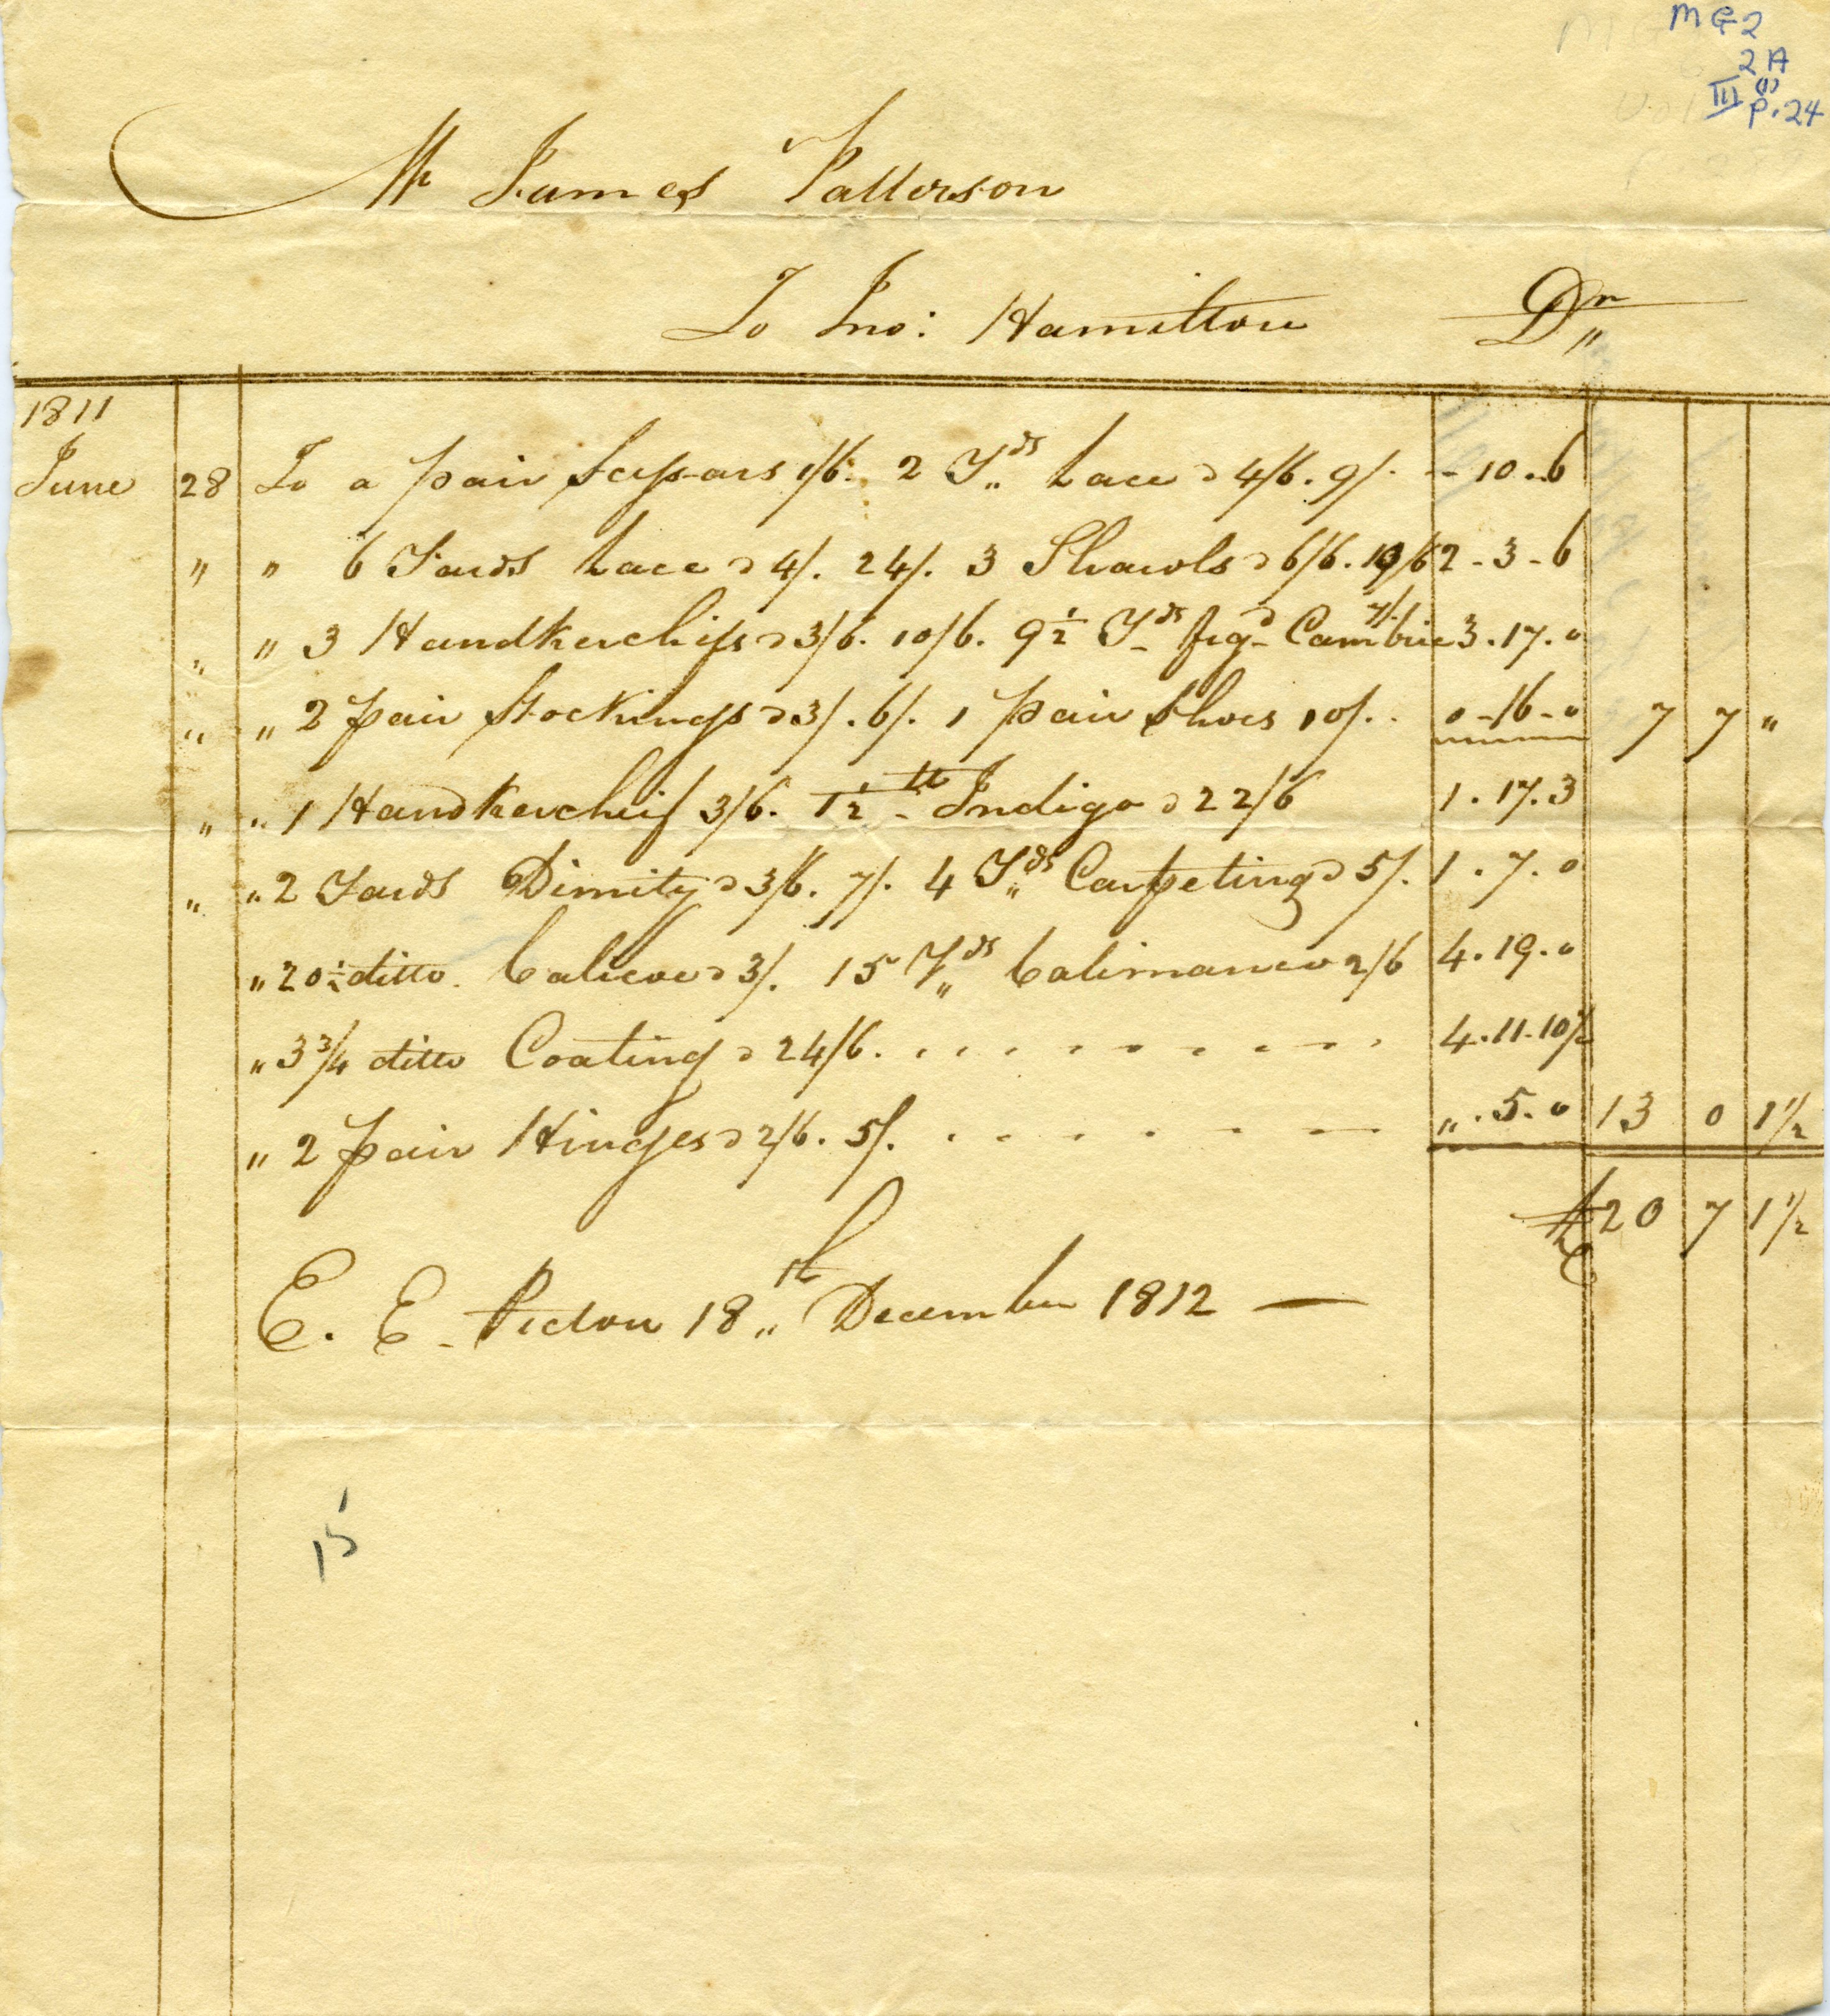 MG2
2A
III (1)
p. 24
Mr James Patterson
To Jno: Hamilton Dr
1811
June 28 To a pair Scissars 1/6. 2 Yds Lace @ 4/6. 9/. -- 10..6
" " 6 Yards Lace @ 4/. 24/. 3 Shawls @ 6/6. 19/6 2-3-6
" " 3 Handkerchifs @ 3/6. 10/6. 9½ Yds figd Cambric 7/. 3.17.0
" " 2 pair Stockings @ 3/. 6/. 1 pair Shoes 10/. . 0-16-0 7 7 "
" " 1 Handkercheif 3/6. 1½ lb Indigo @ 22/6 1.17.3
" " 2 Yards Dimity @ 3/6. 7/. 4 Yds Carpeting @ 5/. 1.7.0
" 20½ ditto Calicoe @ 3/. 15 Yds Calimanco 2/6 4.19.0
" 3¾ ditto Coating @ 24/6. 4.11.10½
" 2 pair Hinges @ 2/6. 5/. ".5.0 13 0 1½
£ 20 7 1½
E. E. Pictou 18th December 1812 —
15